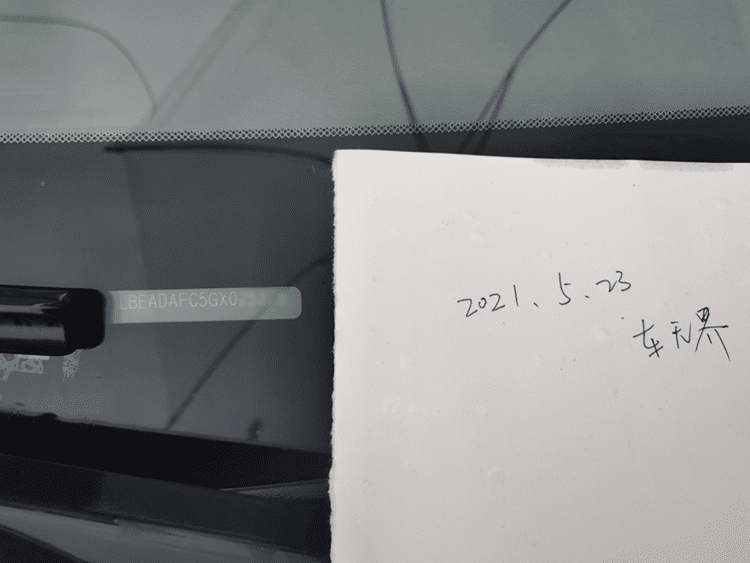 LBEADAFC5GX0
2021.5.23
车无界